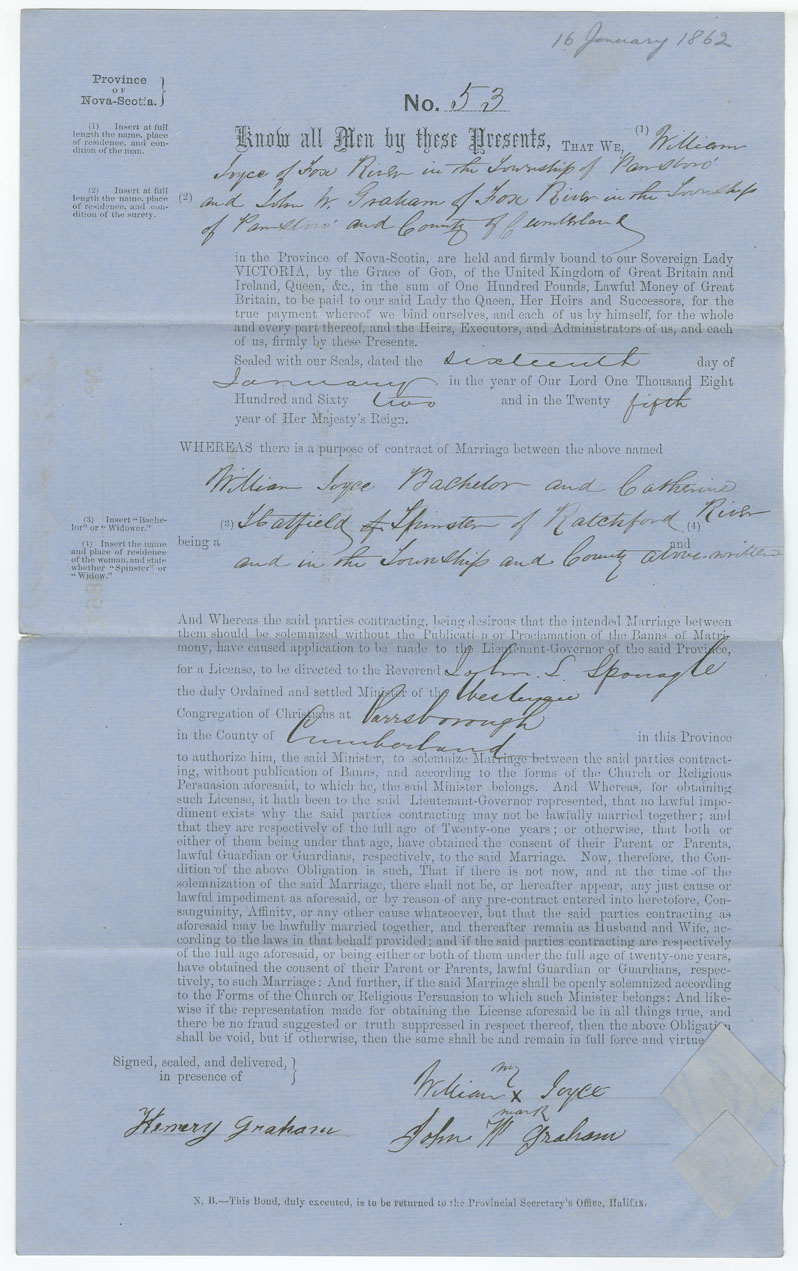 16 January 1862
Province
OF
Nova-Scotia.
No. 53
(1) Insert at full
length the name, place
of residence, and con-
dition of the man.
Know all Men by these Presents, THAT WE, (1) William
Joyce of Fox River in the Township of Parrsboro'
(2) Insert at full
length the name, place
of residence, and con-
dition of the surety.
(2) and John W. Graham of Fox River in the Township
of Parrsboro' and County of Cumberland
in the Province of Nova-Scotia, are held and firmly bound to our Sovereign Lady
VICTORIA, by the Grace of GOD, of the United Kingdom of Great Britain and
Ireland, Queen, &c., in the sum of One Hundred Pounds, Lawful Money of Great
Britain, to be paid to our said Lady the Queen, Her Heirs and Successors, for the
true payment whereof we bind ourselves, and each of us by himself, for the whole
and every part thereof, and the Heirs, Executors, and Administrators of us, and each
of us, firmly by these Presents.
Sealed with our Seals, dated the sixteenth day of
January in the year of Our Lord One Thousand Eight
Hundred and Sixty two and in the Twenty fifth
year of Her Majesty's Reign.
WHEREAS there is a purpose of contract of Marriage between the above named
William Joyce Bachelor and Catherine
(3) Insert "Bache-
lor" or "Widower."
(4) Insert the name
and place of residence
of the woman, and state
whether "Spinster" or
"Widow."
(3) Hatfield Spinster of Ratchford (4) River
being a and
and in the Township and County above-written
And Whereas the said parties contracting, being desirous that the intended Marriage between
them should be solemnized without the Publication or Proclamation of the Banns of Matri-
mony, have caused application to be made to the Lieutenant-Governor of the said Province,
for a License, to be directed to the Reverend John. L. Sponagle
the duly Ordained and settled Minister of the Wesleyan
Congregation of Christians at Parrsborough
in the County of Cumberland in this Province
to authorize him, the said Minister, to solemnize Marriage between the said parties contract-
ing, without publication of Banns, and according to the forms of the Church or Religious
Persuasion aforesaid, to which he, the said Minister belongs. And Whereas, for obtaining
such License, it hath been to the said Lieutenant-Governor represented, that no lawful impe-
diment exists why the said parties contracting may not be lawfully married together; and
that they are respectively of the full age of Twenty-one years; or otherwise, that both or
either of them being under that age, have obtained the consent of their Parent or Parents,
lawful Guardian or Guardians, respectively, to the said Marriage. Now, therefore, the Con-
dition of the above Obligation is such, That if there is not now, and at the time of the
solemnization of the said Marriage, there shall not be, or hereafter appear, any just cause or
lawful impediment as aforesaid, or by reason of any pre-contract entered into heretofore, Con-
sanguinity, Affinity, or any other cause whatsoever, but that the said parties contracting as
aforesaid may be lawfully married together, and thereafter remain as Husband and Wife, ac-
cording to the laws in that behalf provided; and if the said parties contracting are respectively
of the full age aforesaid, or being either or both of them under the full age of twenty-one years,
have obtained the consent of their Parent or Parents, lawful Guardian or Guardians, respec-
tively, to such Marriage: And further, if the said Marriage shall be openly solemnized according
to the Forms of the Church or Religious Persuasion to which such Minister belongs: And like-
wise if the representation made for obtaining the License aforesaid be in all things true, and
there be no fraud suggested or truth suppressed in respect thereof, then the above Obligation
shall be void, but if otherwise, then the same shall be and remain in full force and virtue.
Signed, sealed, and delivered,
in presence of
my
William x Joyce
mark
Henery Graham John W Graham
N. B.—This Bond, duly executed, is to be returned to the Provincial Secretary's Office, Halifax.